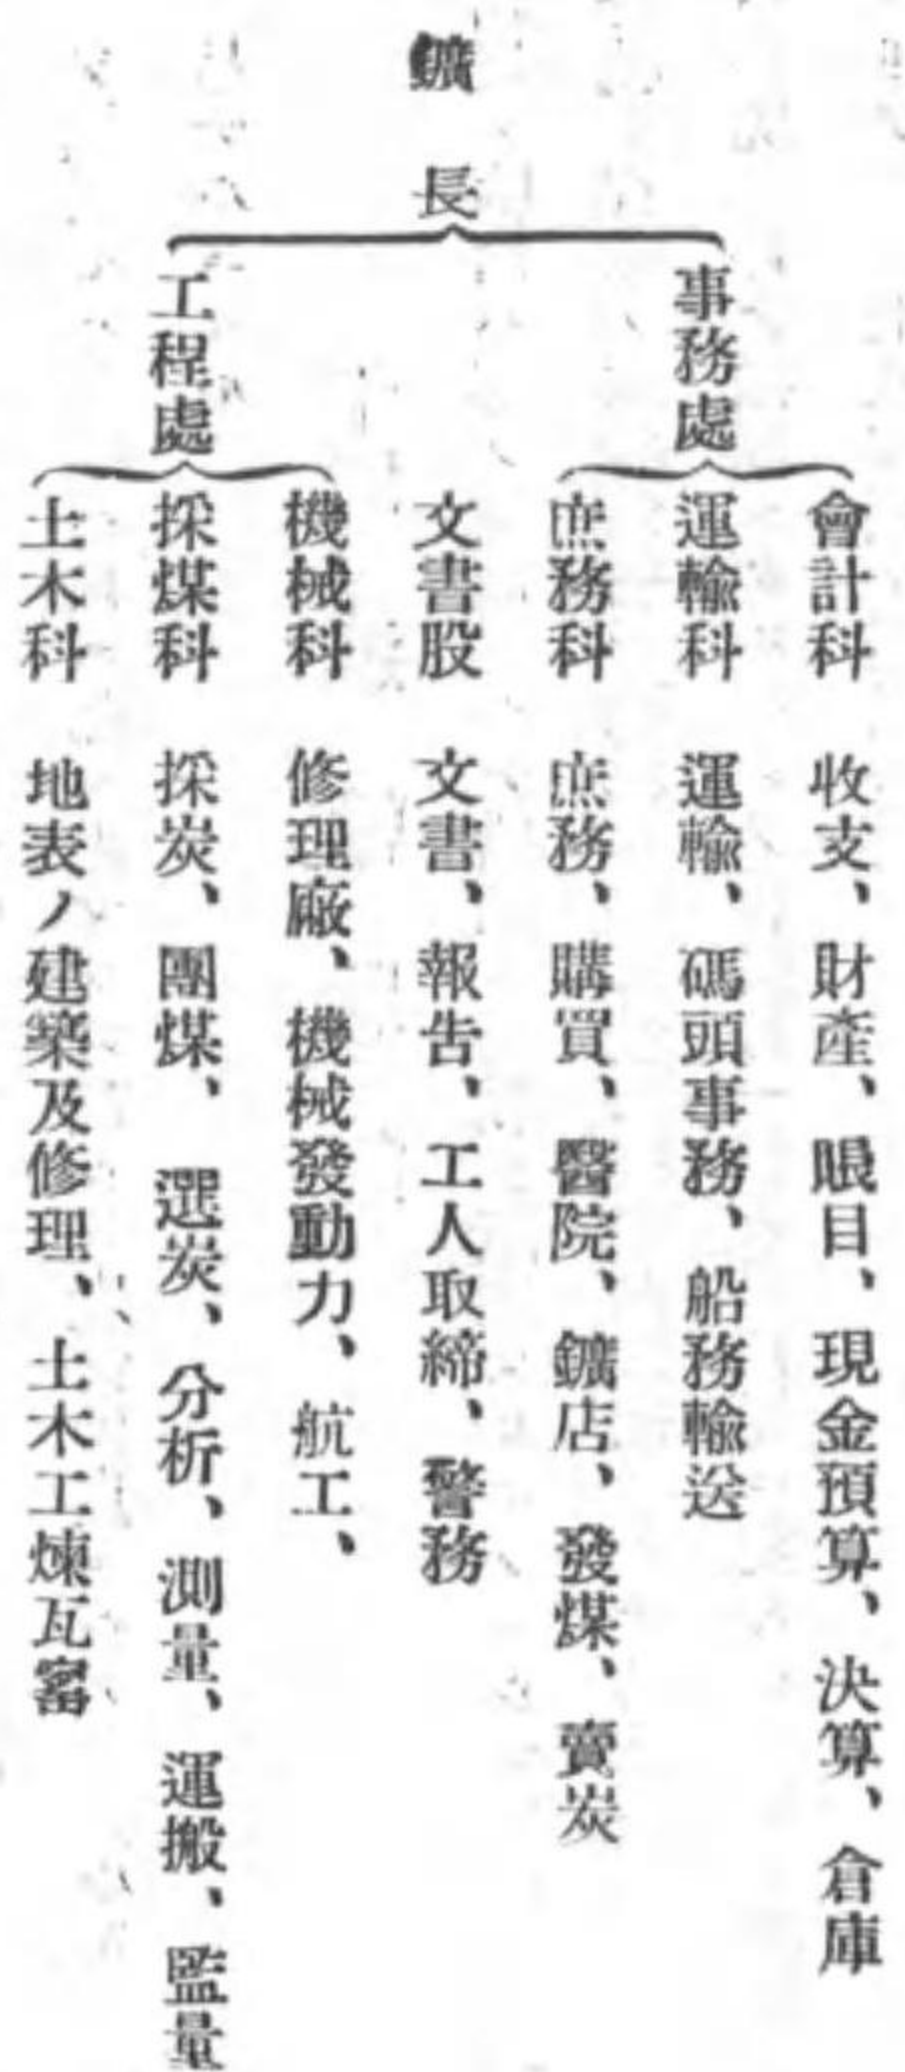 鑛長
事務處
會計科　收支、財產、眼目、現金預算、決算、倉庫
運輸科　運輸、碼頭事務、船務輸送
庶務科　庶務、購買、醫院、鑛店、發煤、賣炭
文書股　文書、報告、工人取締、警務
工程處
機械科　修理廠、機械發動力、航工、
採煤科　採炭、團煤、選炭、分析、測量、運搬、監量
土木科　地表ノ建築及修理、土木工煉瓦窰